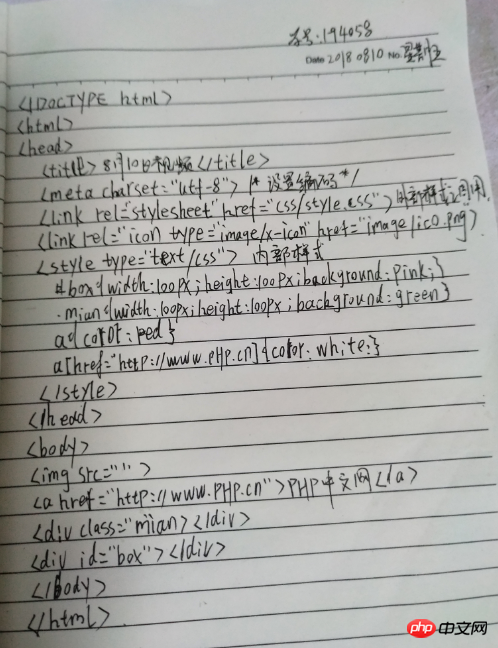 学号:194058
Date 20180810 No. 星期五
<!DOCTYPE html>
<html>
<head>
<title>8月10日视频</title>
<meta charset="utf-8"> /* 设置编码 */
<link rel="stylesheet" href="css/style.css"> 外部样式引用
<link rel="icon type="image/x-icon" href="image/ico.png>
<style type="text/css"> 内部样式
#box{width:100px;height:100px;background:pink;}
.mian{width:100px;height:100px;background:green}
a{color:red}
a[href="http://www.PHP.cn]{color:white;}
</style>
</head>
<body>
<img src="">
<a href="http://www.PHP.cn">PHP中文网</a>
<div class="mian></div>
<div id="box"></div>
</body>
</html>
php中文网